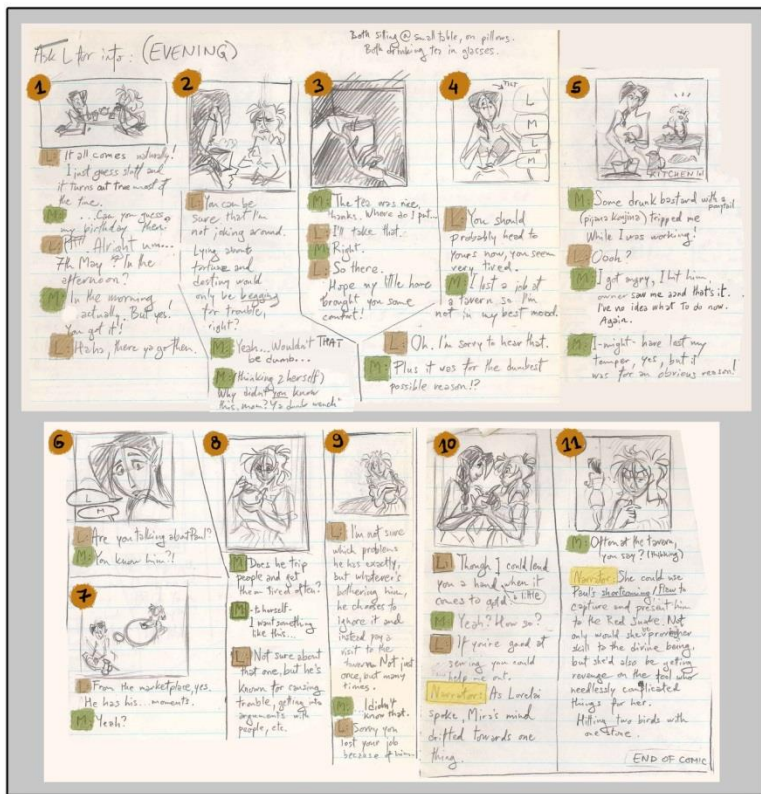 Ask L for info: (EVENING)
Both sitting @ small table, on pillows.
Both drinking tea in glasses.
1
L: It all comes naturally!
I just guess stuff and
it turns out true most of
the time.
M: ...Can you guess
my birthday then?
L: Alright umm...
7th May? In the
afternoon?
M: In the morning
actually. But yes!
You got it!
L: Haha, there ya go then.
2
L: You can be
sure that I'm
not joking around.
Lying about
fortune and
destiny would
only be begging
for trouble,
right?
M: Yeah... Wouldn't THAT
be dumb...
M: (thinking 2 herself)
Why didn't you know
this, mom? Ya dumb wench"
3
M: The tea was nice,
thanks. Where do I put...
L: I'll take that.
M: Right.
L: So there.
Hope my little home
brought you some
comfort!
4
L
M
L
M
L: You should
probably head to
yours now, you seem
very tired.
M: I lost a job at
a tavern so I'm
not in my best mood.
L: Oh. I'm sorry to hear that.
M: Plus it was for the dumbest
possible reason!?
5
KITCHEN
M: Some drunk bastard with a ponytail
(pijana konjina) tripped me
While I was working!
L: Oooh?
M: I got angry, I hit him,
owner saw me aand that's it.
I've no idea what to do now.
Again.
M: I-might-have lost my
temper, yes, but it
was for an obvious reason!
6
L
M
L: Are you talking about Paul?
M: You know him?!
7
L: From the marketplace, yes.
He has his... moments.
M: Yeah?
8
M: Does he trip
people and get
them fired often?
M: -to herself-
I want something
like this...
L: Not sure about
that one, but he's
known for causing
trouble, getting into
arguments with
people, etc.
9
L: I'm not sure
which problems
he has exactly,
but whatever's
bothering him,
he chooses to
ignore it and
instead pay a
visit to the
tavern. Not just
once, but many
times.
M: ...I didn't
know that.
L: Sorry you
lost your job
because of him.
10
L: Though I could lend
you a hand when it
comes to gold. a little
M: Yeah? How so?
L: If you're good at
sewing you could
help me out.
Narrator: As Loredai
spoke, Mira's mind
drifted towards one
thing.
11
M: Often at the tavern,
you say? (thinking)
Narrator: She could use
Paul's shortcoming/flaw to
capture and present him
to the Red Snake. Not
only would she prove her
skill to the divine being,
but she'd also be getting
revenge on the fool who
needlessly complicated
things for her.
Hitting two birds with
one stone.
END OF COMIC